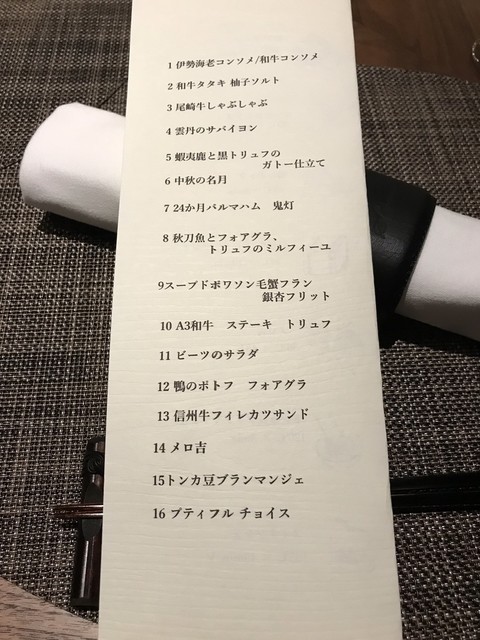 1 伊勢海老コンソメ/和牛コンソメ
2 和牛タタキ 柚子ソルト
3 尾崎牛しゃぶしゃぶ
4 雲丹のサバイヨン
5 蝦夷鹿と黒トリュフの
ガトー仕立て
6 中秋の名月
7 24か月パルマハム 鬼灯
8 秋刀魚とフォアグラ、
トリュフのミルフィーユ
9スープドポワソン毛蟹フラン
銀杏フリット
10 A3和牛 ステーキ トリュフ
11 ビーツのサラダ
12 鴨のポトフ フォアグラ
13 信州牛フィレカツサンド
14 メロ吉
15トンカ豆ブランマンジェ
16 プティフル チョイス